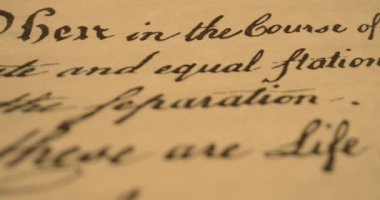 When in the Course of
ate and equal ſtation
the ſeparation.
these are Life